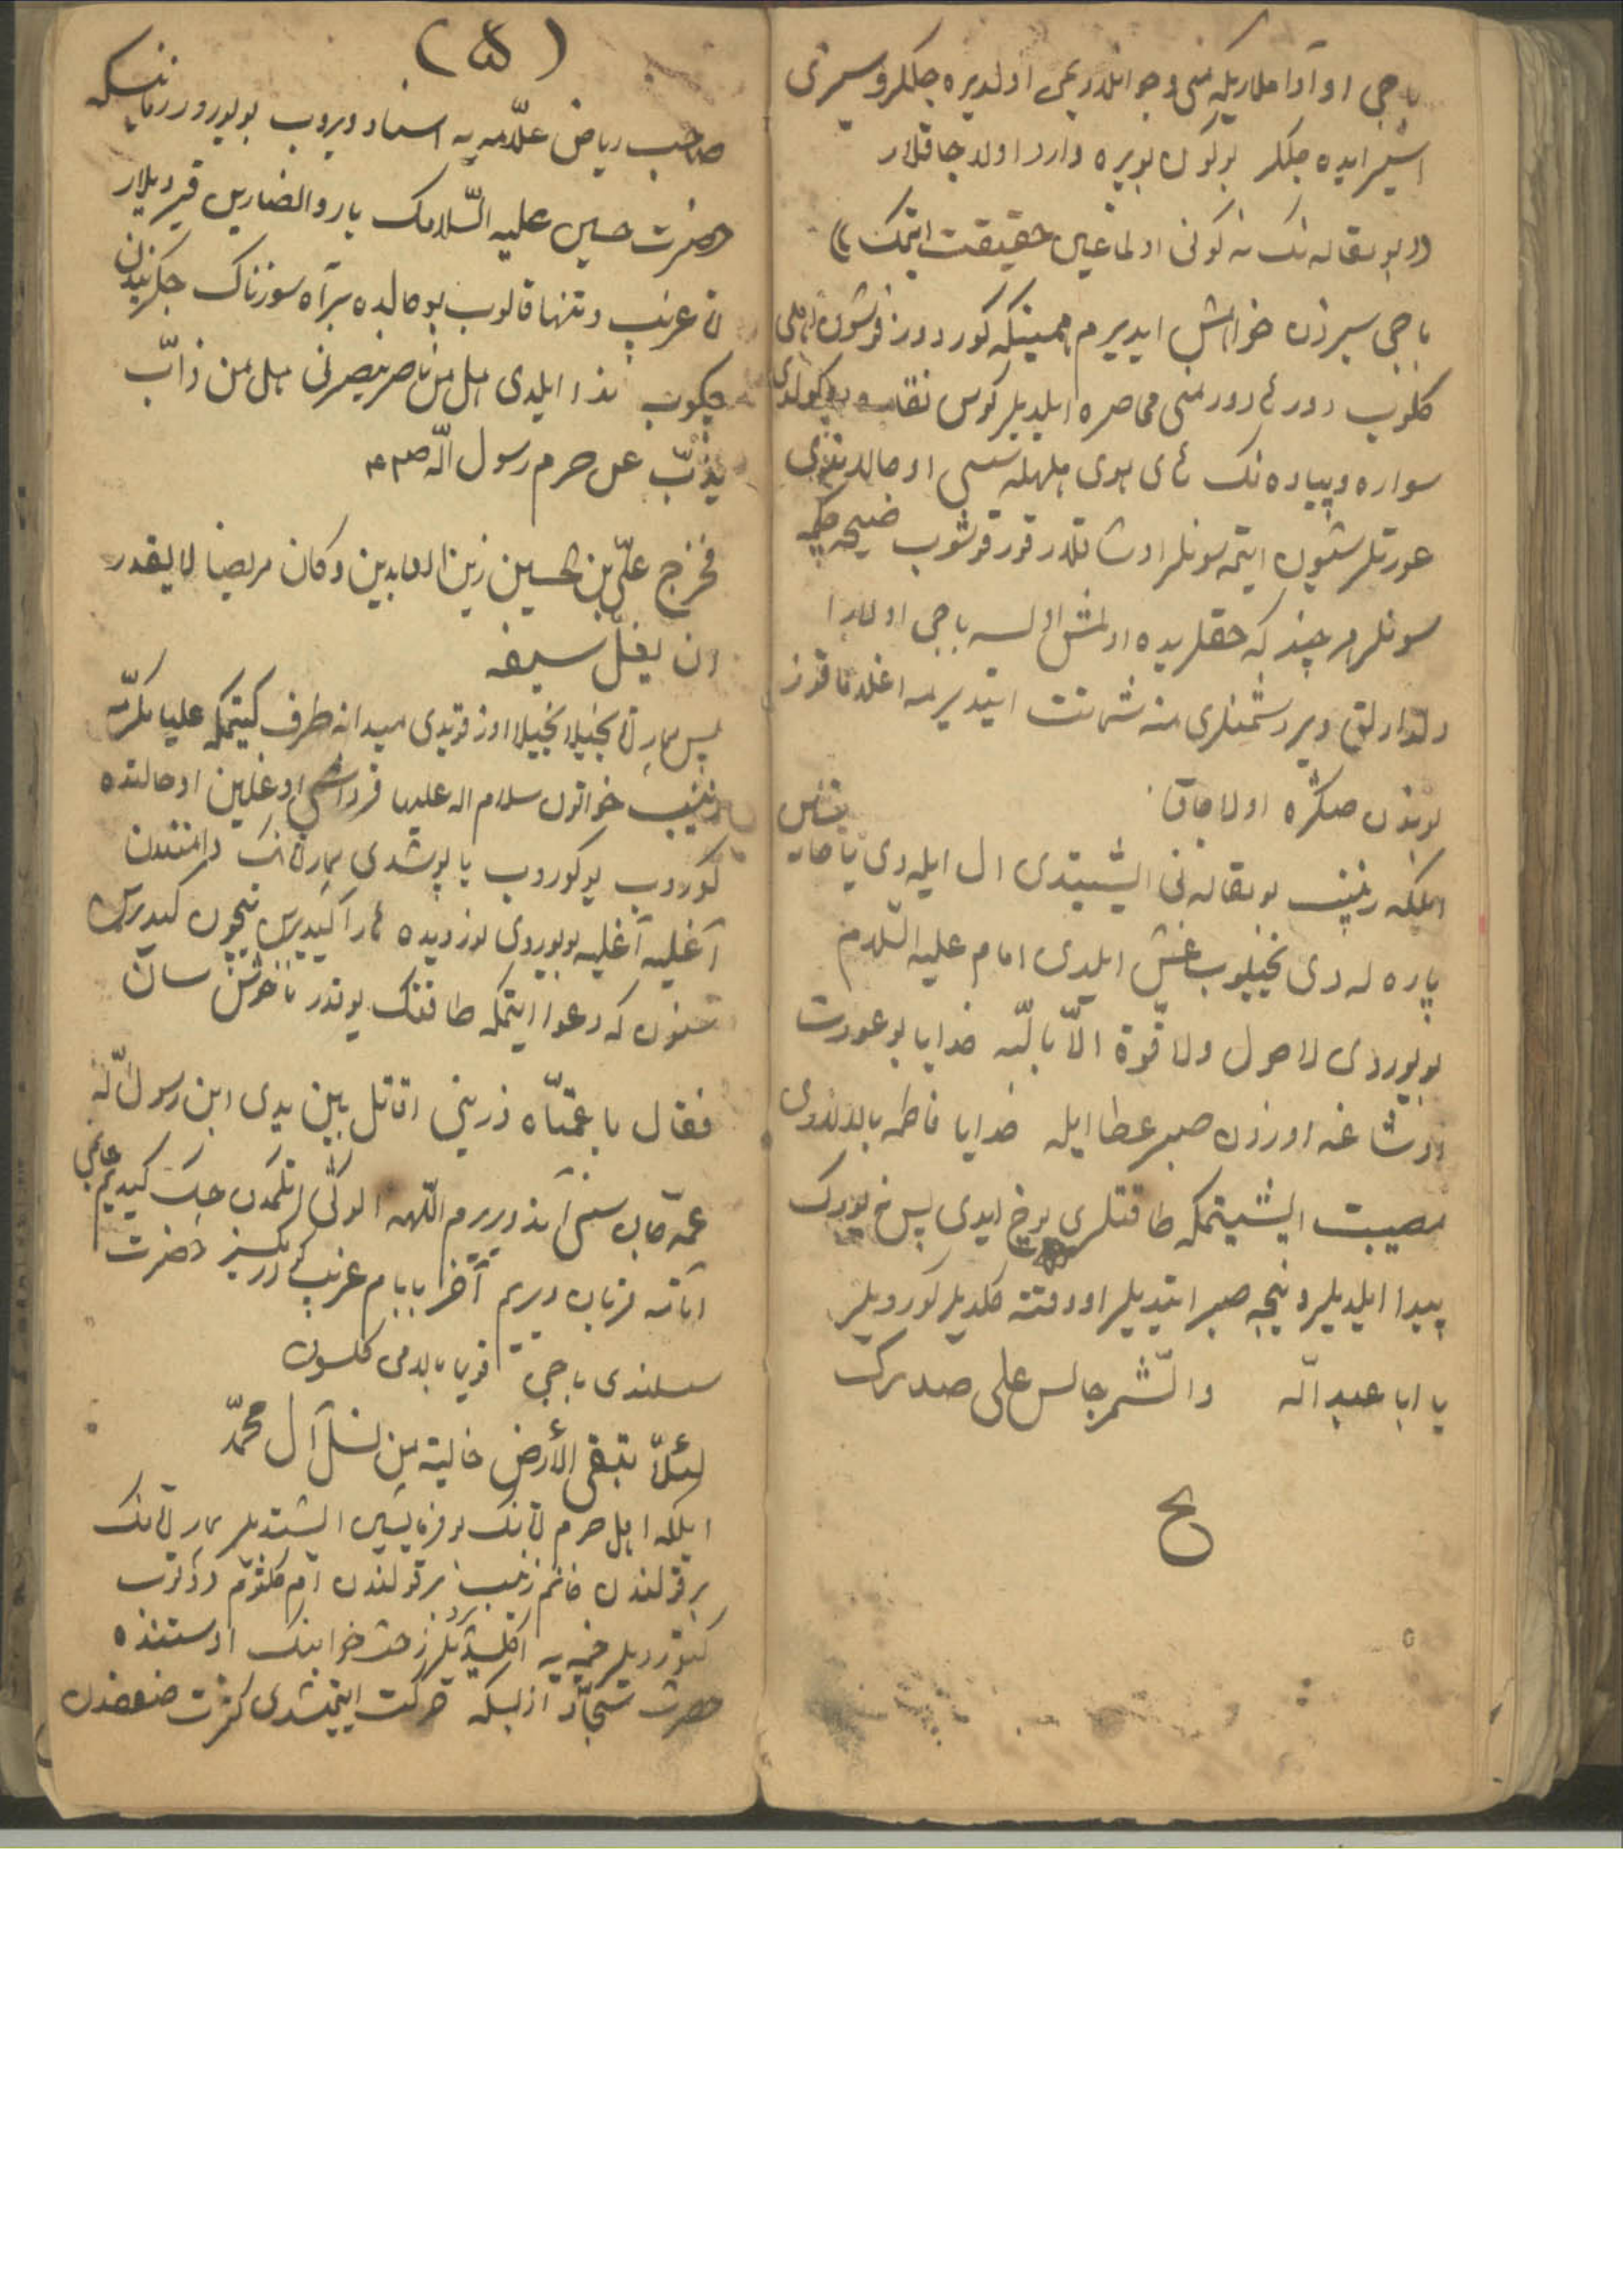 باجی او آدا ملاریله منی و جوانلاریمی اولدیره جکلر و سیزی
اسیر ایده جکلر بوکون بویره وارد اولاجاقلار
((بو مقاله نک نه کونی اولماغین حقیقت ایتمک))
باجی سیزدن خواهش ایدیرم همینکه کوردوز قوشون اهلی
کلوب دورئ دور منی محاصره ایلدیلر کوس نقاره
سواره و پیاده نک های هوی هلهله سسی اوجالدیزی
عورتلر شیون ایتمه سونلر اوشاقلار قورقوشوب ضیحه چکمه
سونلر هر چند که حقلریده اولمش اولسه باجی اولارا
دلدارلق ویر دشمنلری منه شماتت ایتدیرمه اغلاماقوز
بوندن صکره اولاجاق
ایلکه زینب بو مقاله نی ایشیتدی ال ایله دی یاخاسین
پاره له دی یخیلوب غش ایلدی امام علیه السلام
بویوردی لا حول ولا قوة الا بالله خدایا بو عورت
اوشاغه اوزون صبر عطا ایله خدایا فاطمه بالالاری
مصیبت ایشیتمکه طاقتلری یوخ ایدی پس نه یورک
پیدا ایلدیلر و نیجه صبر ایتدیلر او وقته کلدیلر کوردیلر
یا ابا عبد الله والشمر جالس علی صدرک
ح
(۵)
صاحب ریاض علامه یه اسناد ویروب بویورور زمانیکه
حضرت حسین علیه السلامک یار و انصارین قیردیلار
غریب و تنها قالوب بو حالده بر آه سوزناک جکریندن
چکوب ندا ایلدی هل من ناصر ینصرنی هل من ذاب
یذب عن حرم رسول الله ص
فخرج علی بن الحسین زین العابدین و کان مریضا لا یقدر
ان یقل سیفه
پس بیمار یخیلا یخیلا اوز قویدی میدانه طرف کیتمکه علیا مکرمه
زینب خواتون سلام اله علیها قرداشی اوغلین او حالتده
کوروب یوکوروب یاپوشدی بیمارک دامنندن
آغلیه آغلیه بویوردی نور دیده هارا کیدیرسن نیچون کیدیرسن
سنون که دعوا ایتمکه طاقتک یوخدر ناخوش سان
فقال یا عمتاه ذرینی اقاتل بین یدی ابن رسول الله
عمه جان سنی آند ویررم اللهه الوکی اتکمدن چک کیدیم
آتامه قربان ویریم آخر بابام غریب دور حضرت
سسلندی باجی قویما بالامی کلسون
لئلا تبقی الأرض خالیة من نسل آل محمد
ایلکه اهل حرم بو فرمایشین ایشتدیلر بیمارک
بر قولندن خانم زینب بر قولندن ام کلثوم دوتوب
کتوردیلر خیمه یه اکلشدیلر رختخوابنک اوستنده
حضرت سجاد از بسکه حرکت ایتمشدی کثرت ضعفدن